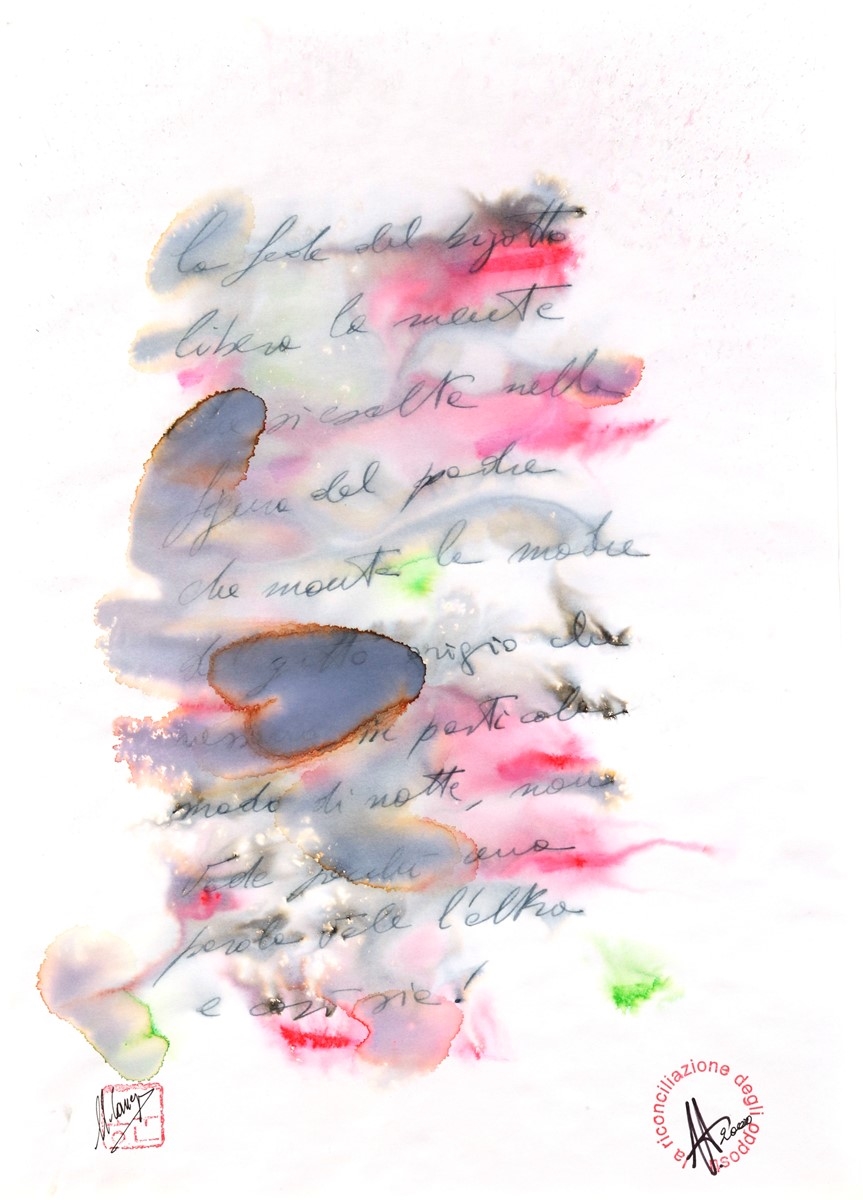 la fede del bigotto
libera la mente
si esalta nella
figura del padre
che monta la madre
del gatto grigio che
in particolar
modo di notte, non
vede perché una
parola vale l'altra
e così sia!
la riconciliazione degli opposti